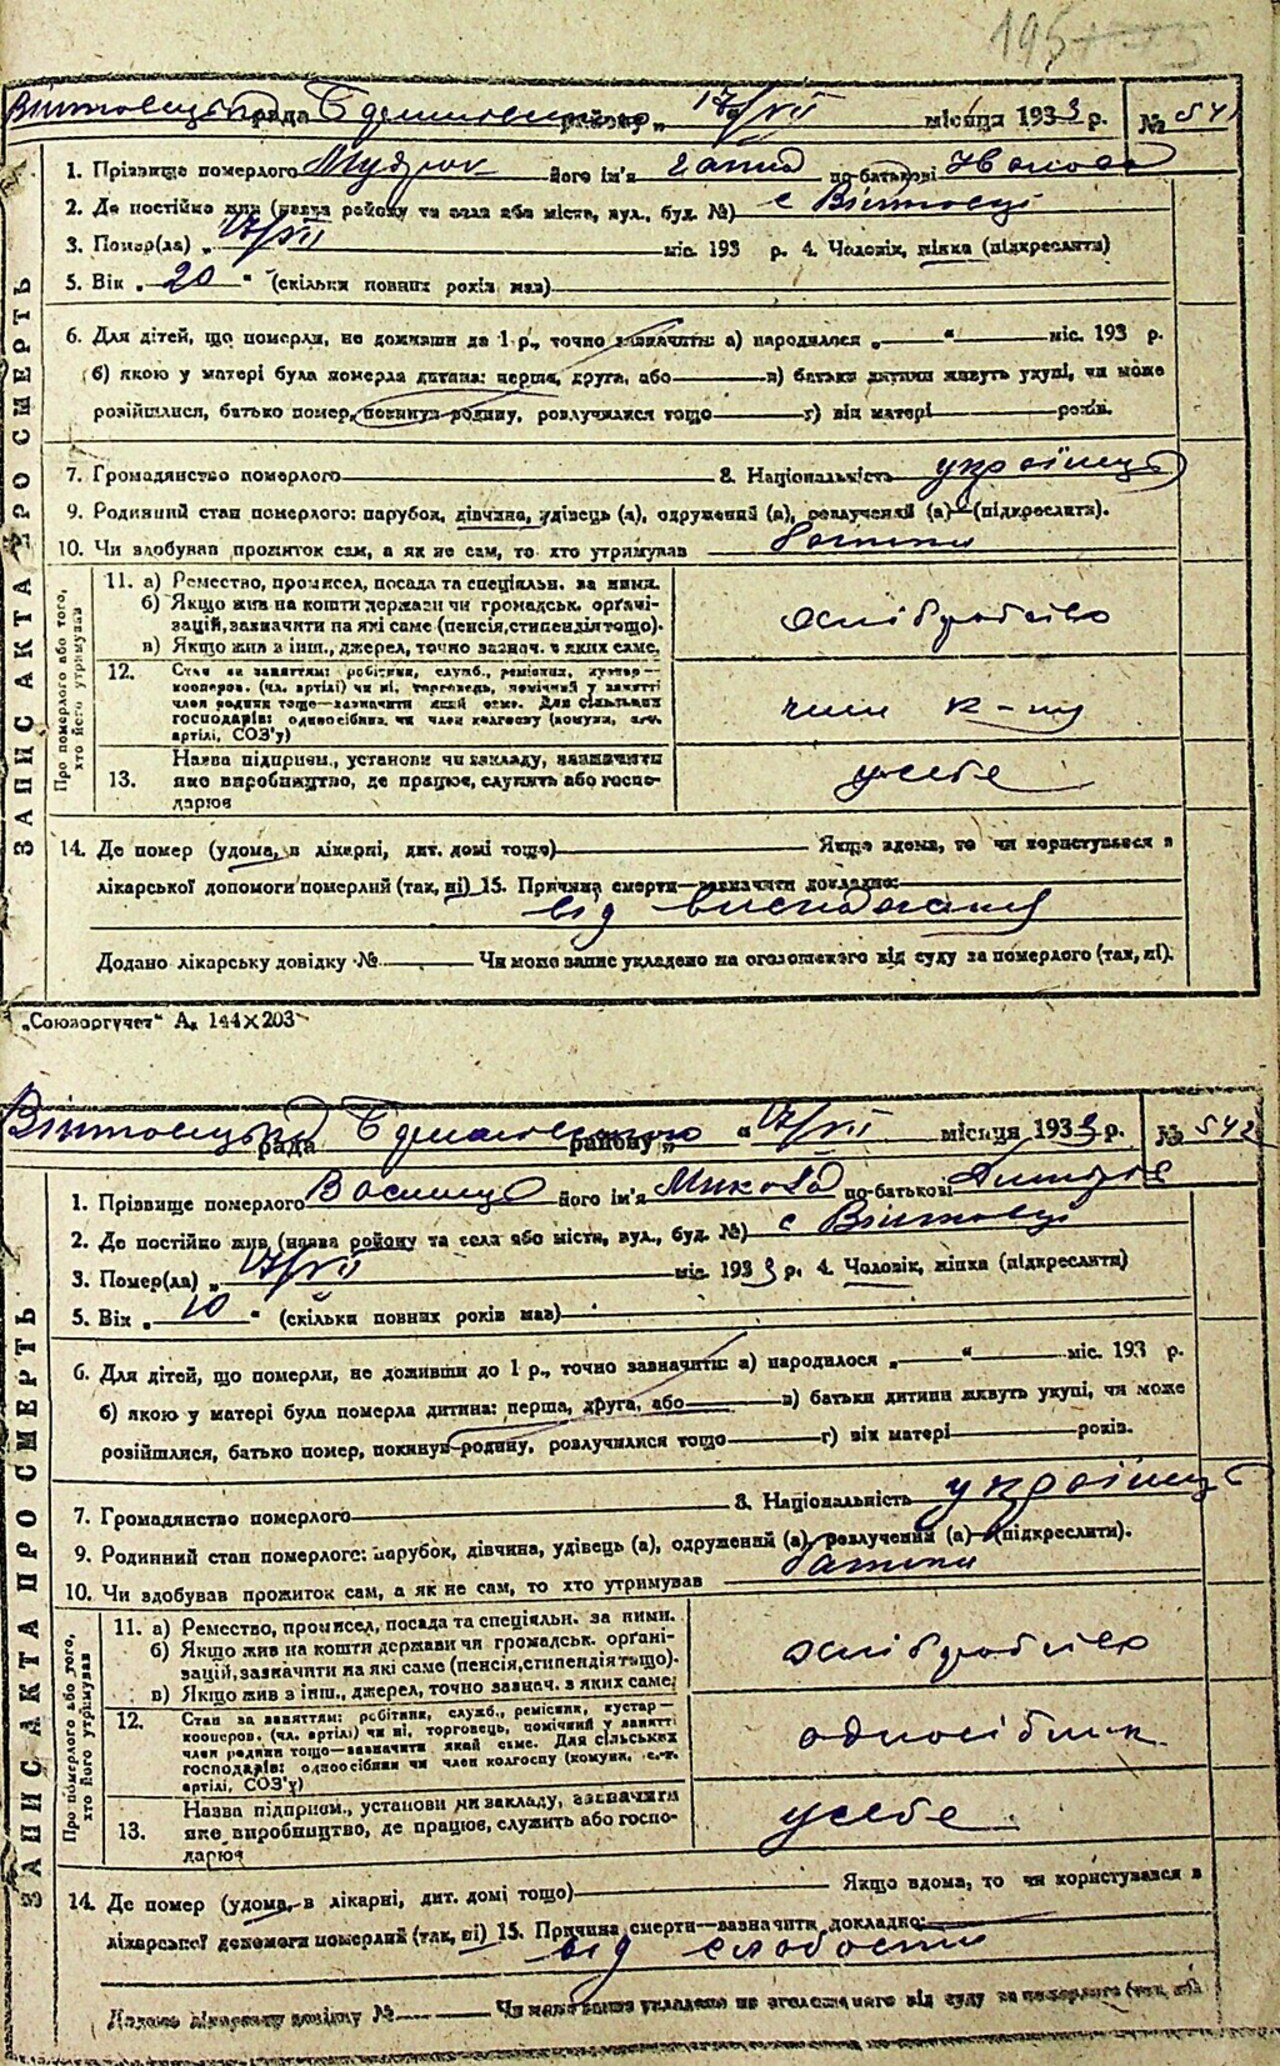 195
рада району „ 17/VII місяця 1933 р. № 541
1. Прізвище померлого Мудрик його ім'я Ганна по-батькові Іванова
2. Де постійно жив (назва району та села або міста, вул., буд. №) с Війтовці
3. Помер(ла) „ 17/VII міс. 193 р. 4. Чоловік, жінка (підкреслити)
5. Вік „ 20 “ (скільки повних років мав)
6. Для дітей, що померли, не доживши до 1 р., точно зазначити: а) народилося „ “ міс. 193 р.
б) якою у матері була померла дитина: перша, друга, або в) батьки дитини живуть укупі, чи може
розійшлися, батько помер, покинув родину, розлучилися тощо г) вік матері років.
7. Громадянство померлого 8. Національність українець
9. Родинний стан померлого: парубок, дівчина, удівець (а), одружений (а), розлучений (а) (підкреслити).
10. Чи здобував прожиток сам, а як не сам, то хто утримував батьки
ЗАПИС АКТА ПРО СМЕРТЬ
Про померлого або того, хто його утримував
11. а) Ремество, промисел, посада та спеціяльн. за ними.
б) Якщо жив на кошти держави чи громадськ. орґані-
зацій, зазначити на які саме (пенсія, стипендія тощо).
в) Якщо жив з інш., джерел, точно зазнач. з яких саме.
хліборобство
12. Стан за заняттям: робітник, служб., ремісник, кустар—
кооперов. (чл. артілі) чи ні, торговець, помічний у занятті
член родини тощо—зазначити який саме. Для сільських
господарів: одноосібник чи член колгоспу (комуни, с.-г.
артілі, СОЗ'у)
член к-пу
13. Назва підприєм., установи чи закладу, зазначити
яке виробництво, де працює, служить або госпо-
дарює
у себе
14. Де помер (удома, в лікарні, дит. домі тощо) Якщо вдома, то чи користувався з
лікарської допомоги померлий (так, ні) 15. Причина смерти—зазначити докладно:
від виснаження
Додано лікарську довідку № Чи може запис укладено на оголошеного від суду за померлого (так, ні).
„Союзоргучет“ А₄ 144×203
рада району „ 17/VII місяця 1933 р. № 542
1. Прізвище померлого його ім'я Микола по-батькові
2. Де постійно жив (назва району та села або міста, вул., буд. №) с Війтовці
3. Помер(ла) „ 17/VII міс. 1933 р. 4. Чоловік, жінка (підкреслити)
5. Вік „ 10 “ (скільки повних років мав)
6. Для дітей, що померли, не доживши до 1 р., точно зазначити: а) народилося „ “ міс. 193 р.
б) якою у матері була померла дитина: перша, друга, або в) батьки дитини живуть укупі, чи може
розійшлися, батько помер, покинув родину, розлучилися тощо г) вік матері років.
7. Громадянство померлого 8. Національність українець
9. Родинний стан померлого: парубок, дівчина, удівець (а), одружений (а), розлучений (а) (підкреслити).
10. Чи здобував прожиток сам, а як не сам, то хто утримував батьки
ЗАПИС АКТА ПРО СМЕРТЬ
Про померлого або того, хто його утримував
11. а) Ремество, промисел, посада та спеціяльн. за ними.
б) Якщо жив на кошти держави чи громадськ. орґані-
зацій, зазначити на які саме (пенсія, стипендія тощо).
в) Якщо жив з інш., джерел, точно зазнач. з яких саме.
хліборобство
12. Стан за заняттям: робітник, служб., ремісник, кустар—
кооперов. (чл. артілі) чи ні, торговець, помічний у занятті
член родини тощо—зазначити який саме. Для сільських
господарів: одноосібник чи член колгоспу (комуни, с.-г.
артілі, СОЗ'у)
одноосібник
13. Назва підприєм., установи чи закладу, зазначити
яке виробництво, де працює, служить або госпо-
дарює
у себе
14. Де помер (удома, в лікарні, дит. домі тощо) Якщо вдома, то чи користувався з
лікарської допомоги померлий (так, ні) 15. Причина смерти—зазначити докладно:
від слабости
Додано лікарську довідку № Чи може запис укладено на оголошеного від суду за померлого (так, ні)